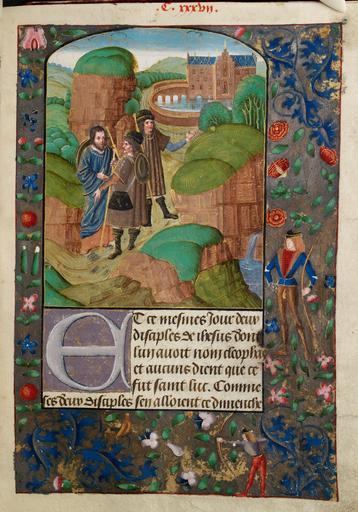 .C. xxxvij.
Et ce mesmes iour deux
disciples de ihesus dont
lun auoit nom cleophas
et aucuns dient que ce
fut saint luc. Comme
ses deux disciples sen alloient ce dimenche